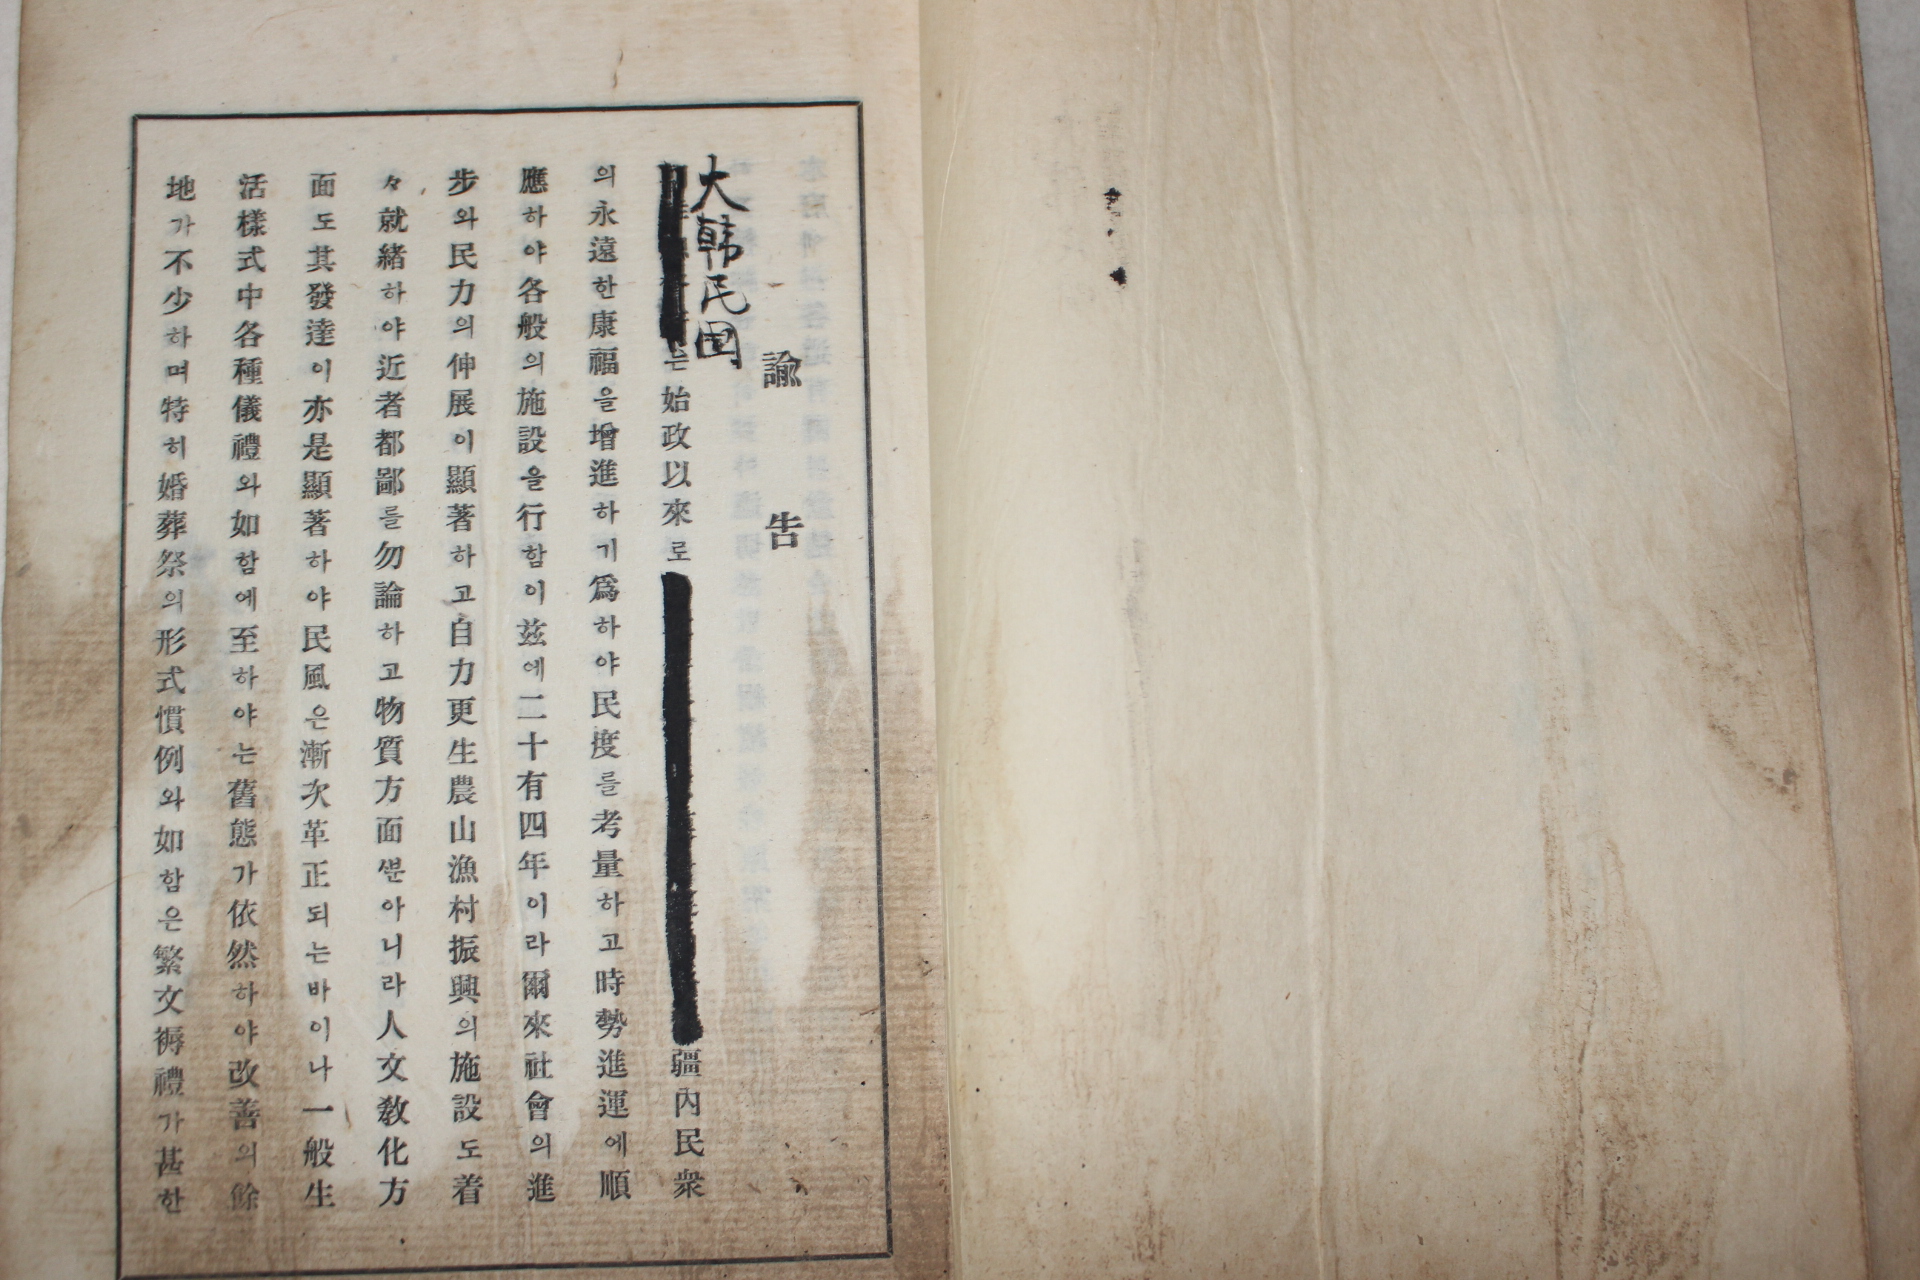 諭告
大韓民国
는始政以來로 疆內民衆
의永遠한康福을增進하기爲하야民度를考量하고時勢進運에順
應하야各般의施設을行함이玆에二十有四年이라爾來社會의進
步와民力의伸展이顯著하고自力更生農山漁村振興의施設도着
々就緖하야近者都鄙를勿論하고物質方面ᄲᅮᆫ아니라人文敎化方
面도其發達이亦是顯著하야民風은漸次革正되는바이나一般生
活樣式中各種儀禮와如함에至하야는舊態가依然하야改善의餘
地가不少하며特히婚葬祭의形式慣例와如함은繁文褥禮가甚한